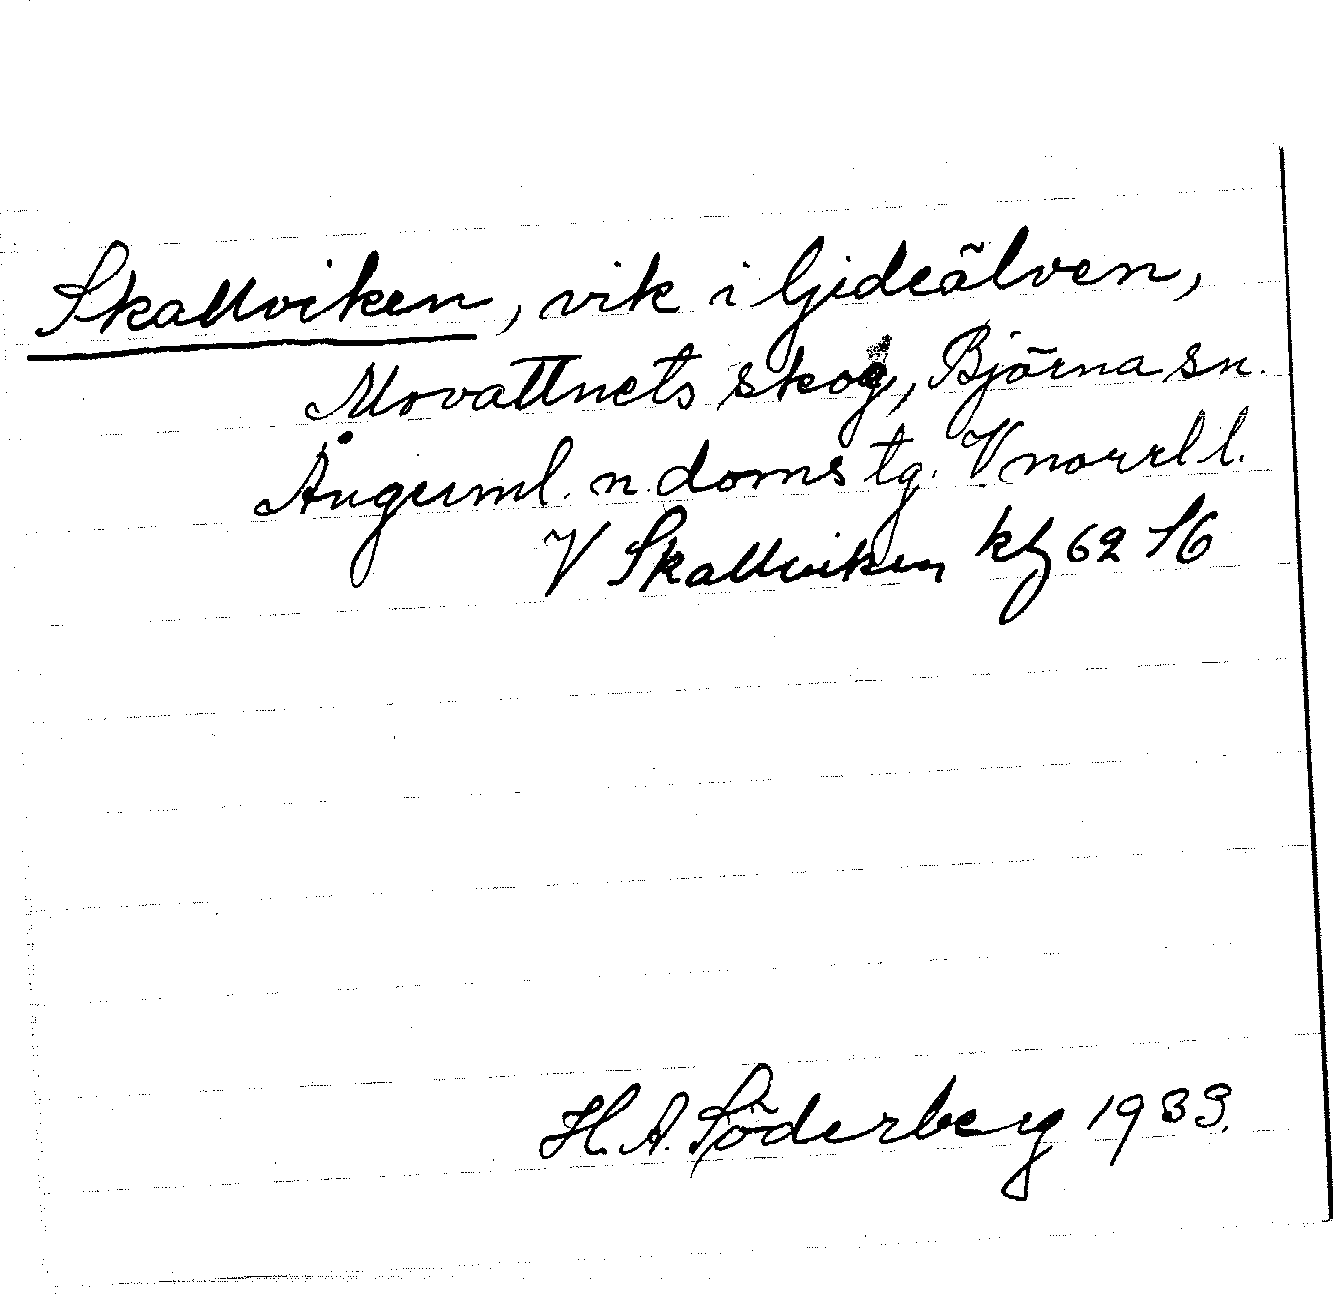 Skallviken, vik i Gideälven,
Movattnets skog, Björna sn.
Ångerml. n. doms tg. Vnorrl l.
V Skallviken kbl 62 S6
H. A. Söderberg 1933.